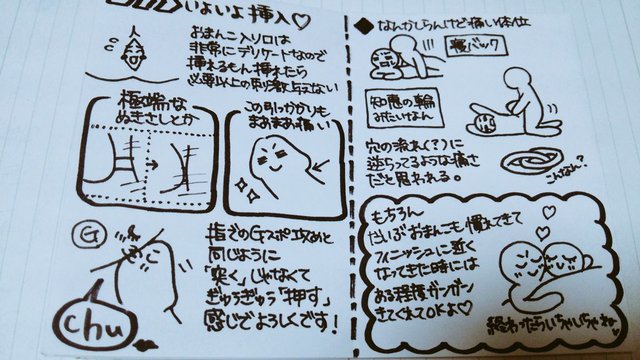 いよいよ挿入♡
おまんこ入り口は
非常にデリケートなので
挿れるもん挿れたら
必要以上の刺激与えない
極端な
ぬきさしとか
この引っかかりも
まあまあ痛い
G
chu
指でのGスポ攻めと
同じように
「突く」じゃなくて
ぎゅうぎゅう「押す」
感じでよろしくです!
◆なんかしらんけど痛い体位
寝バック
知恵の輪
みたいなもん
穴の流れ(?)に
逆らってるような痛さ
だと思われる。
こんなん?
もちろん
だいぶおまんこも慣れてきて
フィニッシュに近く
なってきた時には
ある程度ガンガン
きてくれてOKよ♡
終わったらいちゃいちゃね♡